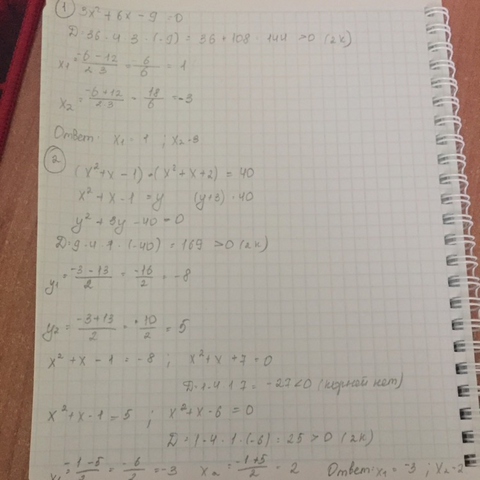 1) 3x² + 6x - 9 = 0
D = 36 - 4 · 3 · (-9) = 36 + 108 = 144 > 0 (2k)
x₁ = (-6 - 12)/(2·3) = 6/6 = 1
x₂ = (-6 + 12)/(2·3) = 18/6 = -3
Ответ: x₁ = 1 ; x₂ = 3
2
(x² + x - 1) · (x² + x + 2) = 40
x² + x - 1 = y (y+3) = 40
y² + 3y - 40 = 0
D = 9 - 4 · (-40) = 169 > 0 (2k)
y₁ = (-3 - 13)/2 = -16/2 = -8
y₂ = (-3 + 13)/2 = 10/2 = 5
x² + x - 1 = -8 ; x² + x + 7 = 0
D = 1 - 4 · 7 = -27 < 0 (корней нет)
x² + x - 1 = 5 ; x² + x - 6 = 0
D = 1 - 4 · 1 · (-6) = 25 > 0 (2k)
x₁ = (-1 - 5)/2 = -6/2 = -3 x₂ = (-1 + 5)/2 = 2 Ответ: x₁ = -3 ; x₂ = 2